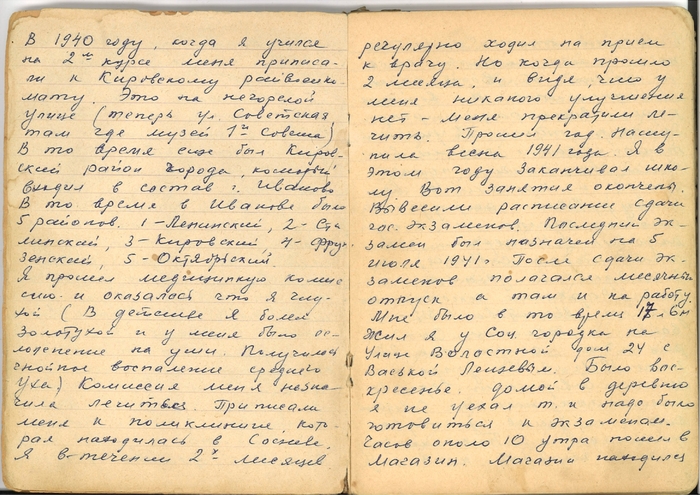 В 1940 году, когда я учился
на 2м курсе меня приписа-
ли к Кировскому райвоенко-
мату. Это на негорелой
улице (теперь ул. Советская
там где музей 1го Совета)
В то время еще был Киров-
ский район города, который
входил в состав г. Иваново
В то время в Иванове было
5 районов. 1-Ленинский, 2-Ста
линский, 3-Кировский, 4-Фрун
зенский, 5-Октябрьский.
Я прошел медицинскую комис
сию. и оказалось что я глу-
хой (В детстве я болел
золотухой и у меня было ос-
ложнение на уши. Получилось
гнойное воспаление среднего
уха) Комиссия меня назна-
чила лечиться. Приписали
меня к поликлинике, кото-
рая находилась в Сосневе.
Я в течении 2х месяцев
регулярно ходил на прием
к врачу. Но когда прошло
2 месяца, и видя, что у
меня никакого улучшения
нет - меня прекратили ле-
чить. Прошел год. Насту-
пила весна 1941 года. Я в
этом году заканчивал шко-
лу. Вот занятия окончены.
Вывесили расписание сдачи
гос. экзаменов. Последний эк-
замен был назначен на 5
июля 1941 г. После сдачи эк-
заменов полагался месячный
отпуск а там и на работу.
Мне было в то время 17 лет
Жил я у Соц. городка на
Улице Воластной дом 24 с
Васькой. Было вос-
кресенье. домой в деревню
я не уехал т.к надо было
готовиться к экзаменам.
Часов около 10 утра пошел в
магазин. Магазин находился